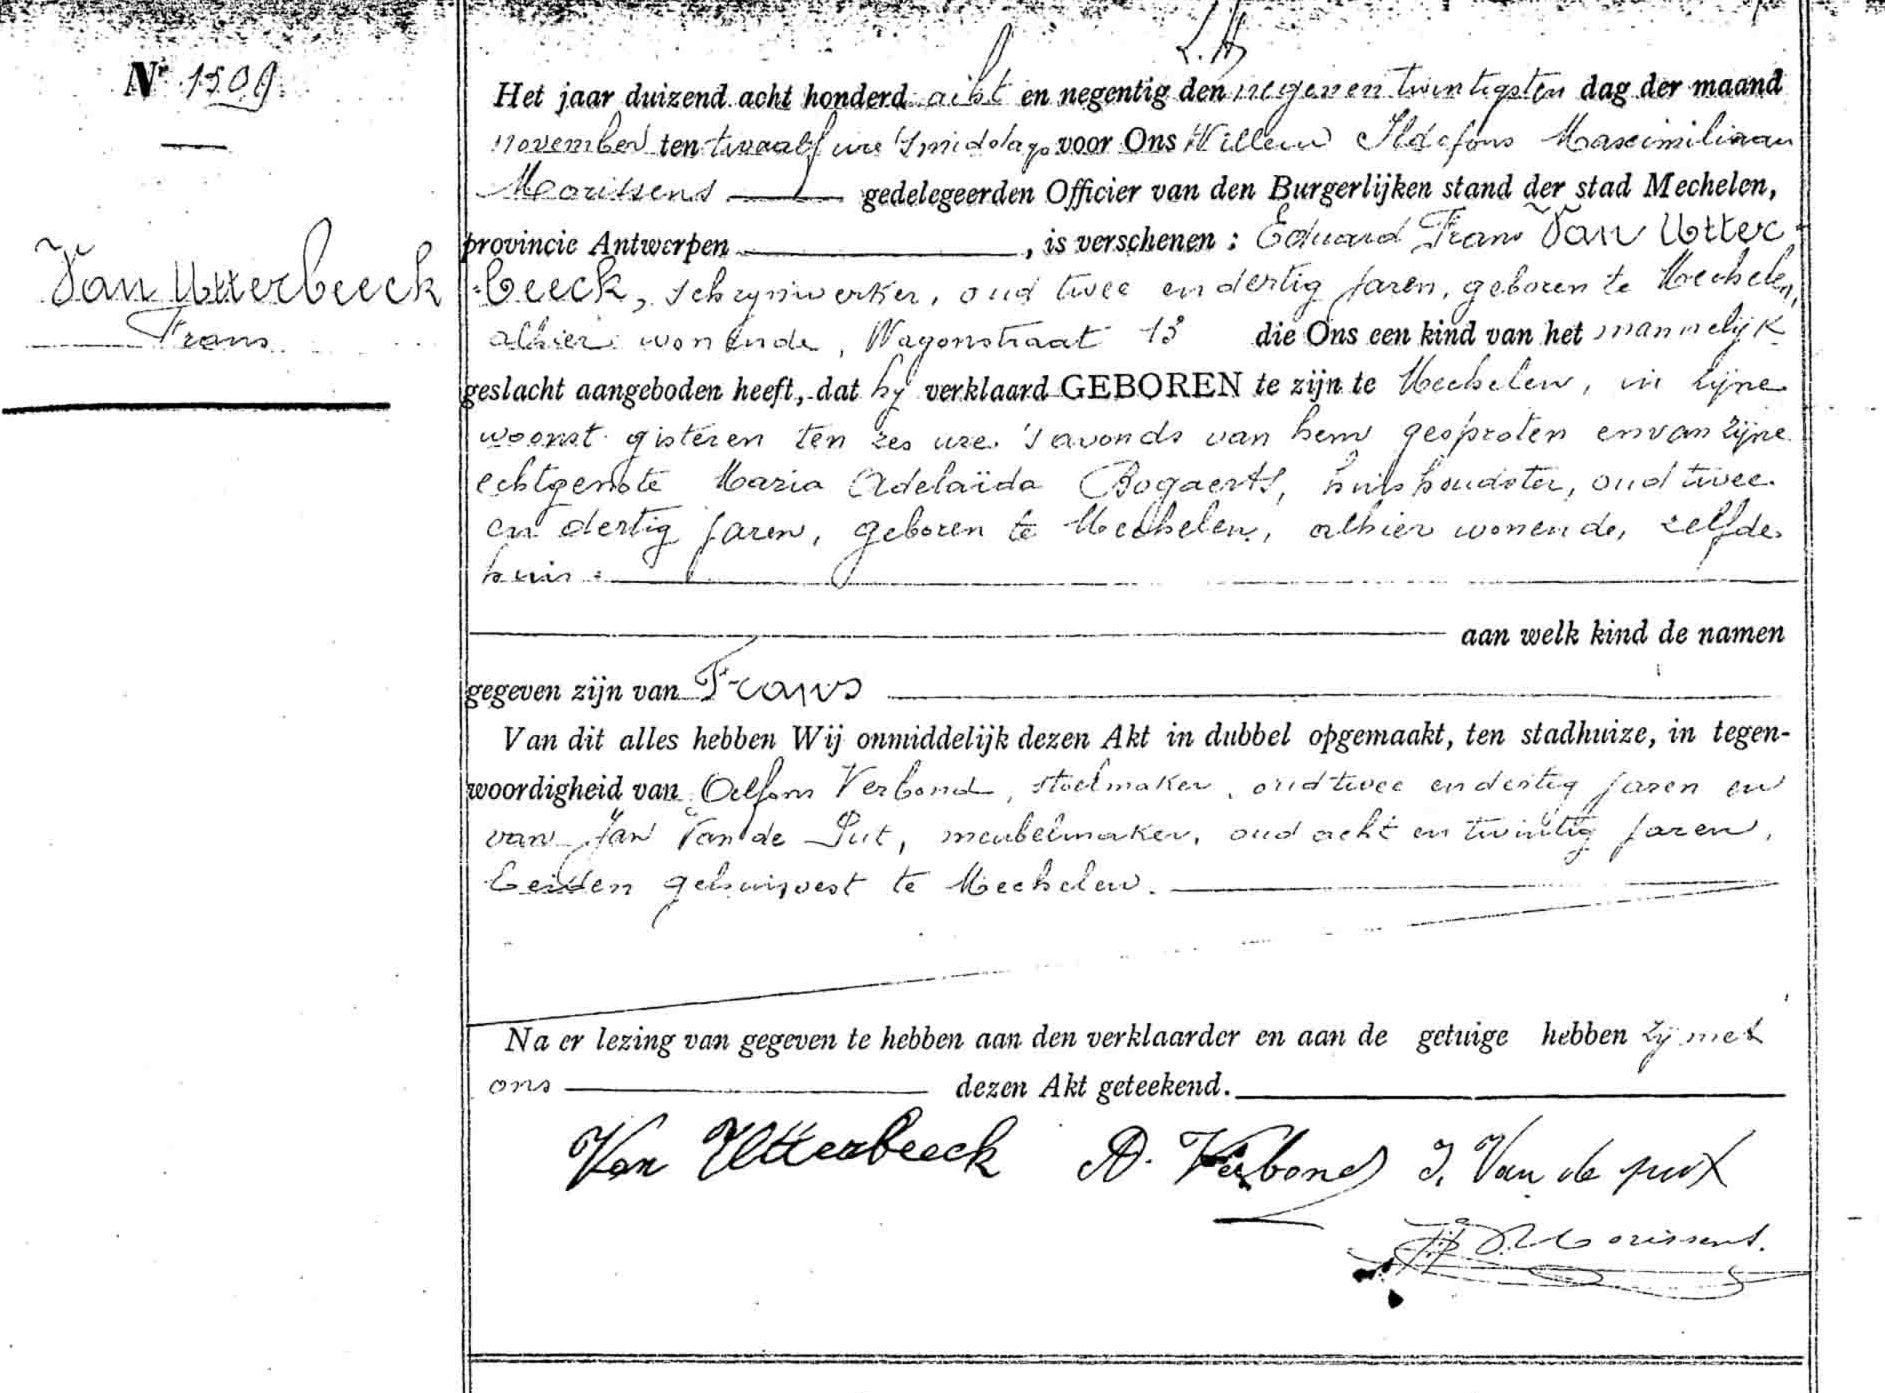 Nr 1509
Het jaar duizend acht honderd acht en negentig den negen en twintigsten dag der maand
november ten twaalf ure 's middags voor Ons Willem Ildefons Maximiliaan
Morissens gedelegeerden Officier van den Burgerlijken stand der stad Mechelen,
provincie Antwerpen , is verschenen : Eduard Frans Van Utter-
Van Utterbeeck
Frans
-beeck, schrynwerker, oud twee en dertig jaren, geboren te Mechelen,
alhier wonende, Wagonstraat 13 die Ons een kind van het mannelijk
geslacht aangeboden heeft, dat hy verklaard GEBOREN te zijn te Mechelen, in zijne
woonst gisteren ten zes ure 's avonds van hem gesproten en van zijne
echtgenote Maria Adelaïda Bogaerts, huishoudster, oud twee
en dertig jaren, geboren te Mechelen, alhier wonende, zelfde
huis
aan welk kind de namen
gegeven zijn van Frans
Van dit alles hebben Wij onmiddelijk dezen Akt in dubbel opgemaakt, ten stadhuize, in tegen-
woordigheid van Alfons Verbond, stoelmaker, oud twee en dertig jaren en
van Jan Van de Put, meubelmaker, oud acht en twintig jaren,
beiden gehuisvest te Mechelen.
Na er lezing van gegeven te hebben aan den verklaarder en aan de getuige hebben zy met
ons dezen Akt geteekend.
Van Utterbeeck A. Verbond J. Van de put
Morissens.